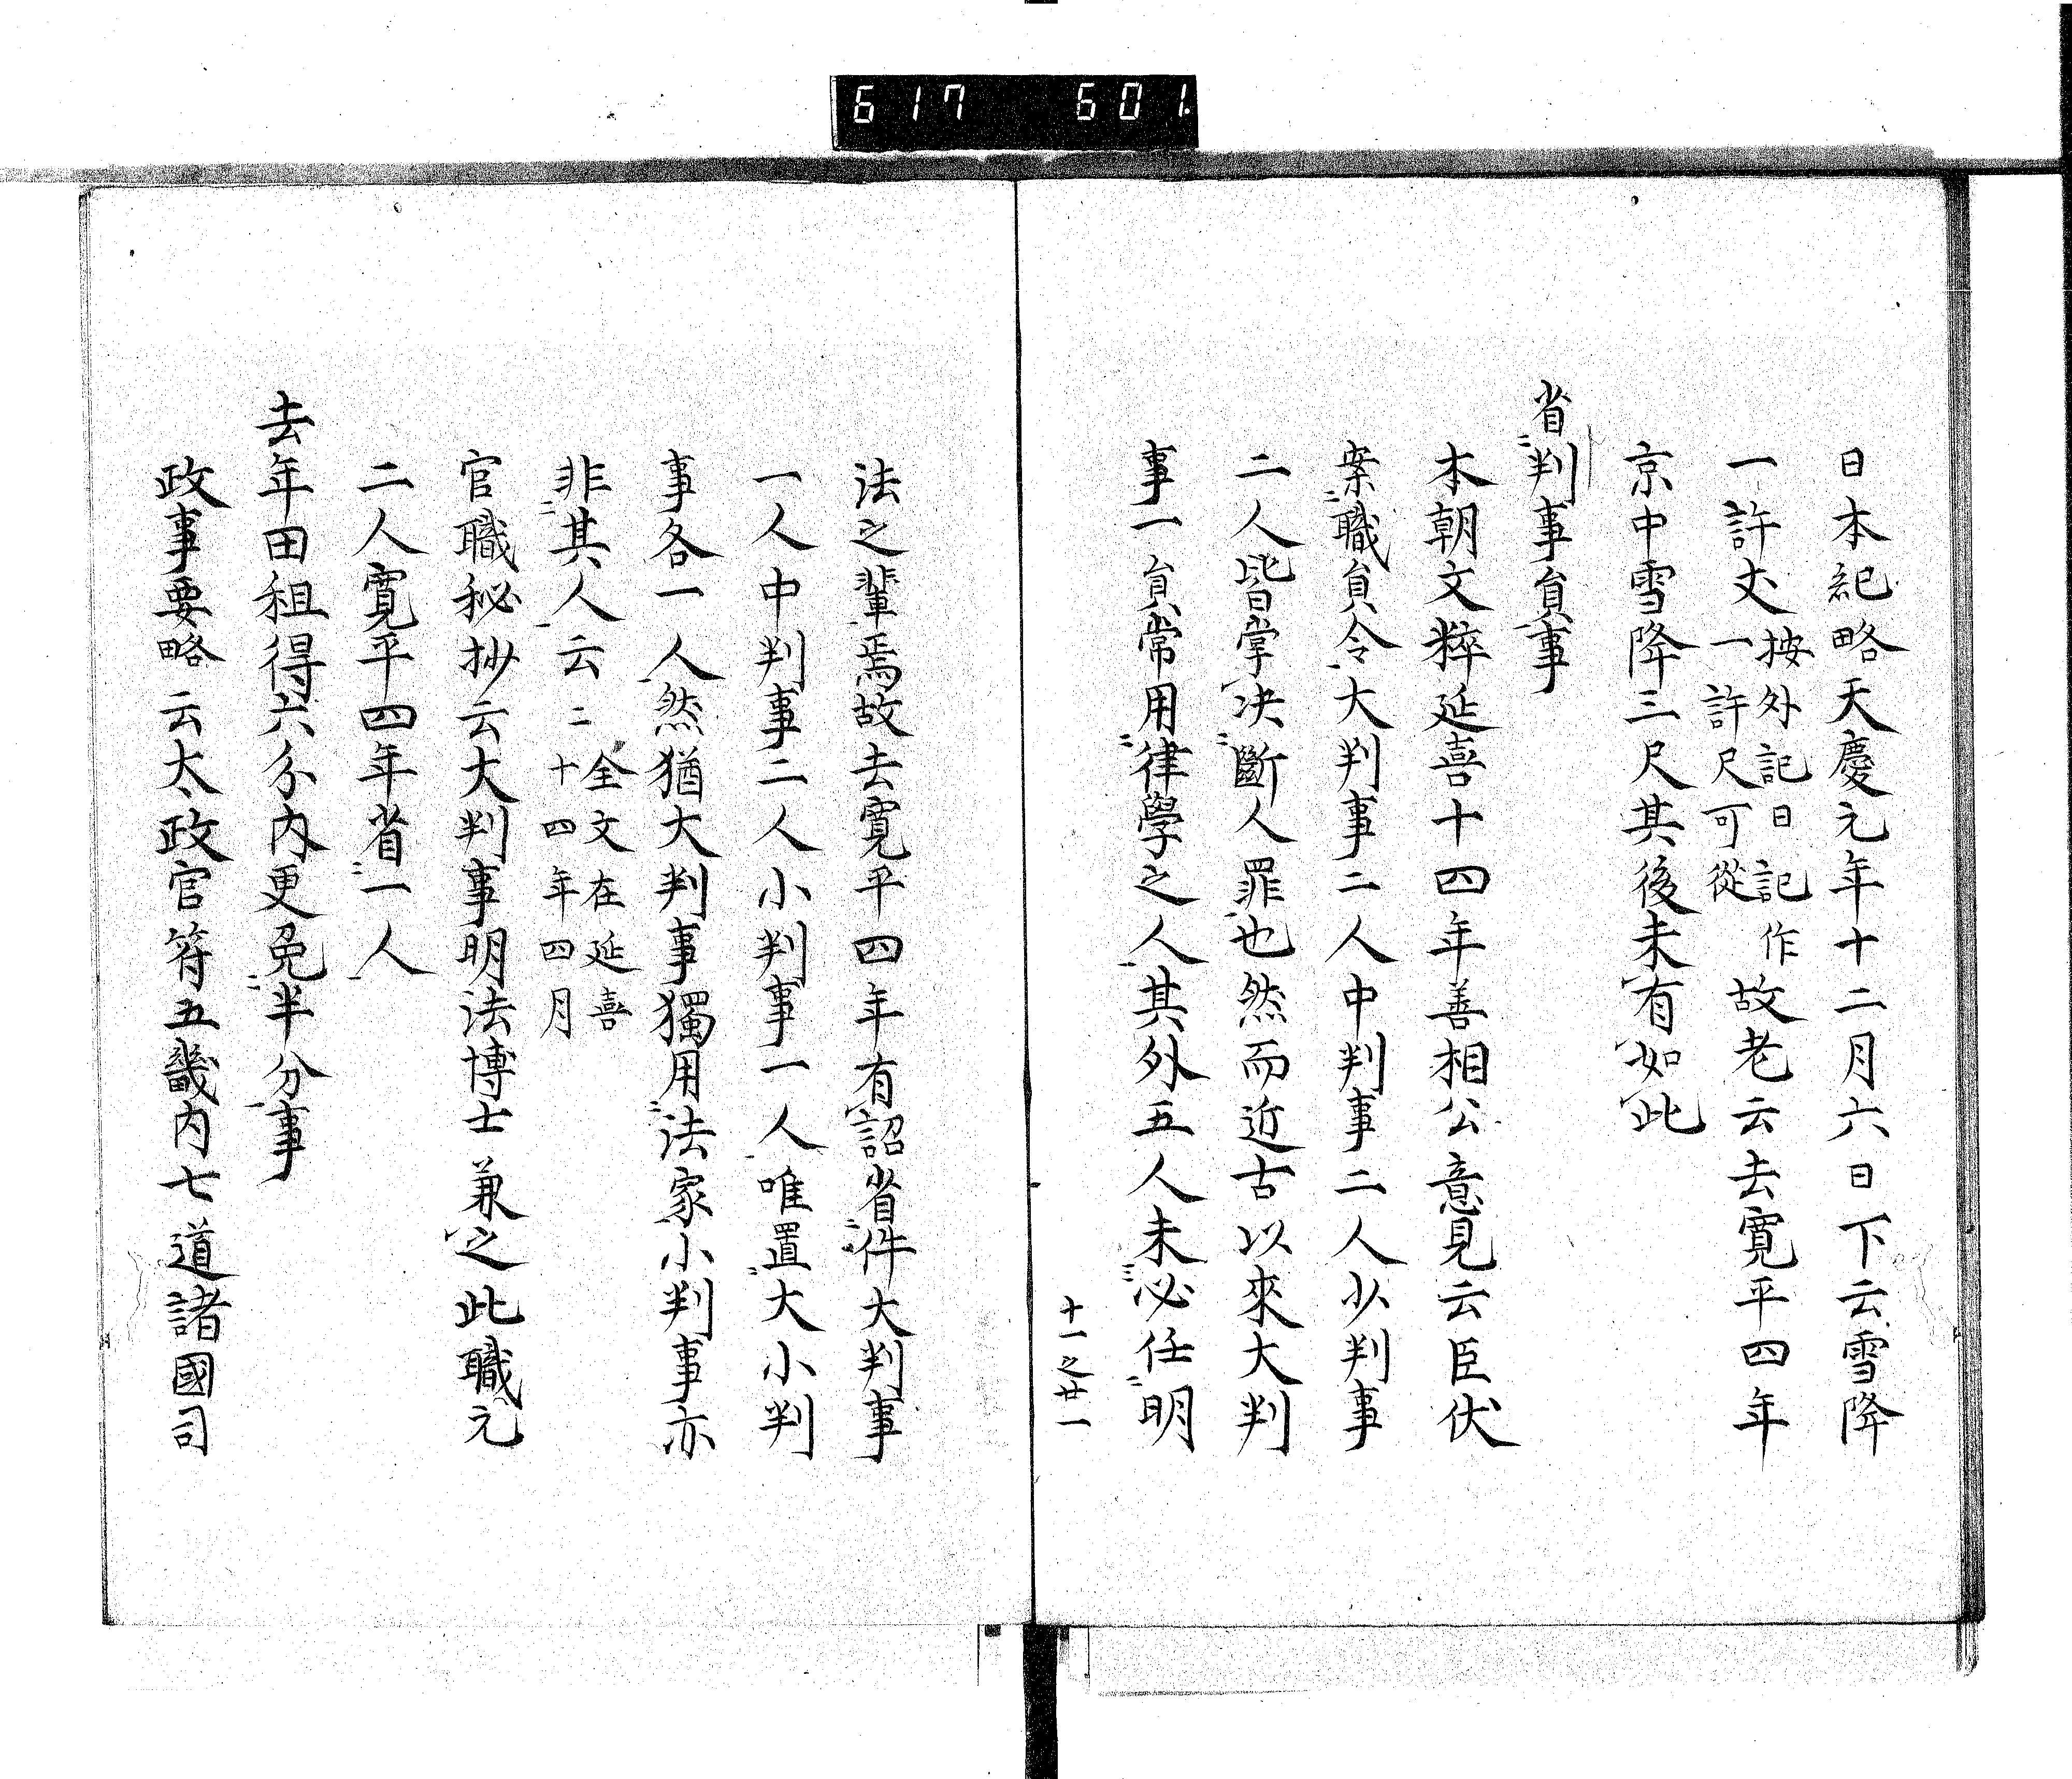 617 601
日本紀略天慶元年十二月六日下云雪降
一許丈按外記日記作一許尺可從故老云去寛平四年
京中雪降三尺其後未有如此
省判事貟事
本朝文粹延喜十四年善相公意見云臣伏
案職貟令大判事二人中判事二人少判事
二人皆掌决斷人罪也然而近古以來大判
事一貟常用律學之人其外五人未必任明
十一之廿一
法之輩焉故去寛平四年有詔省件大判事
一人中判事二人小判事一人唯置大小判
事各一人然猶大判事獨用法家小判事亦
非其人云〻全文在延喜十四年四月
官職秘抄云大判事明法博士兼之此職元
二人寛平四年省一人
去年田租得六分内更免半分事
政事要略云太政官符五畿内七道諸國司